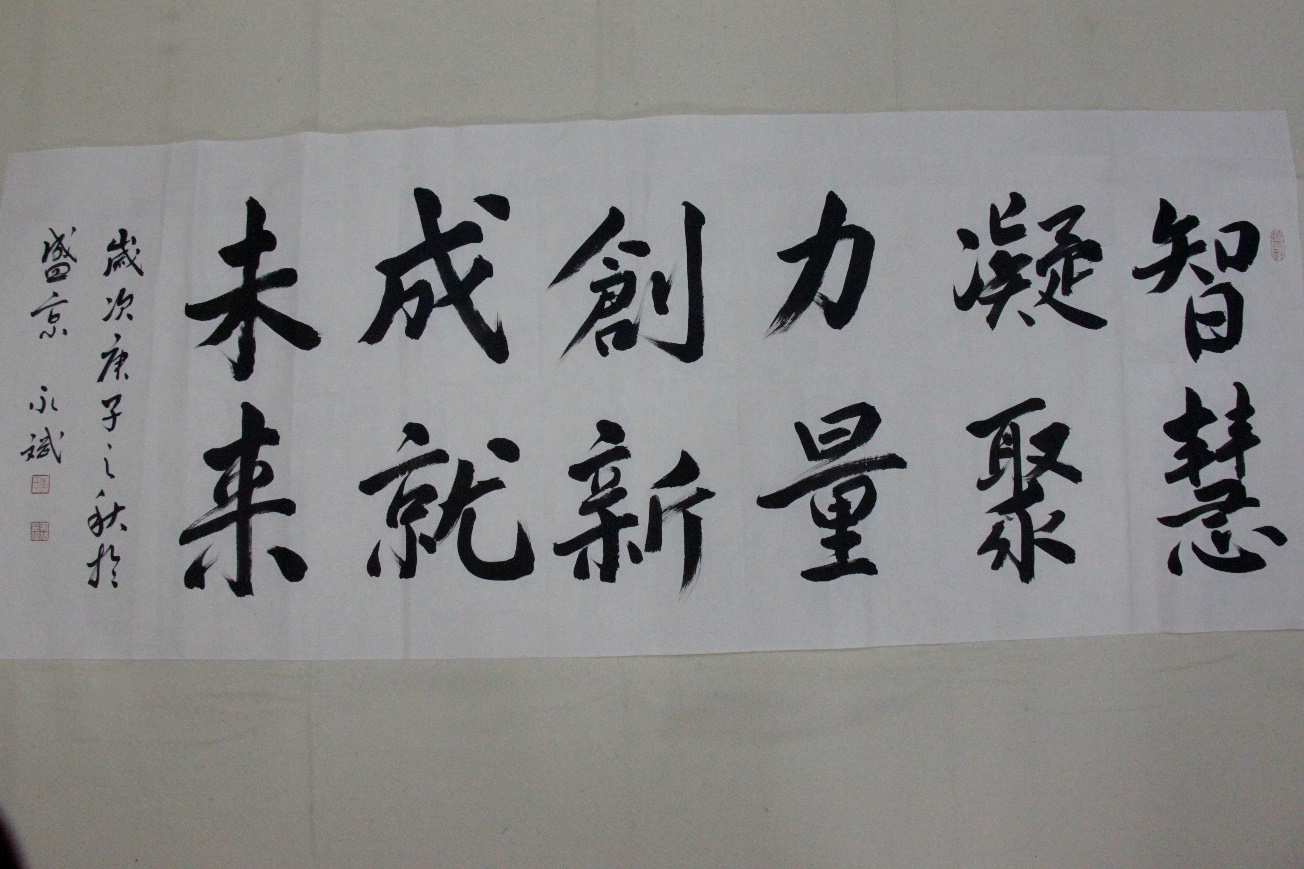 智慧
凝聚
力量
創新
成就
未来
歲次庚子之秋於
盛京 永斌